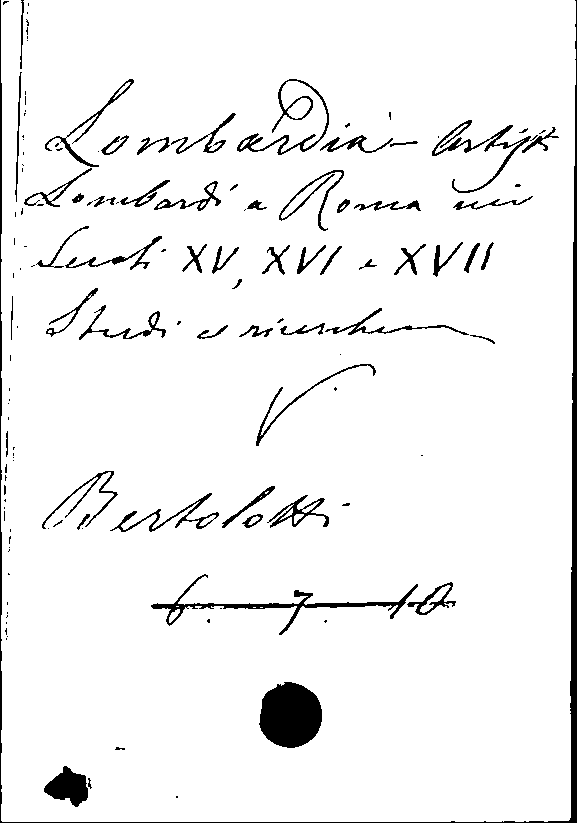 Lombardia - Artisti
Lombardi a Roma nei
Secoli XV, XVI e XVII
Studi e ricerche
V.
Bertolotti
6. 7. 10